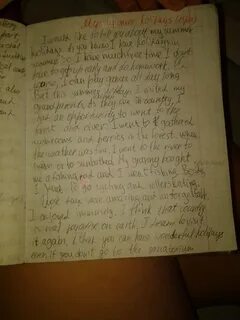 My summer holidays
I would like to tell you about my summer
holidays. As you know I have holidays in
summer. So, I have much free time. I don't
have to get up early and do homework.
I can play games all day long.
But this summer holidays I visited my
grandparents. As they are in country, I
had an opportunity to went to the
forest and river. I went to gathered
mushrooms and berries in the forest. When
the weather was hot I went to the river to
swim or to sunbathed. My granny bought
me a fishing rod and I went fishing. Besides,
I to go cycling and rollerskating.
These days were amazing and unforgettable.
I enjoyed immensely. I think that country
is real paradise on earth. I dream to visit
it again. I that you can have wonderful holidays
even if you don't go to the